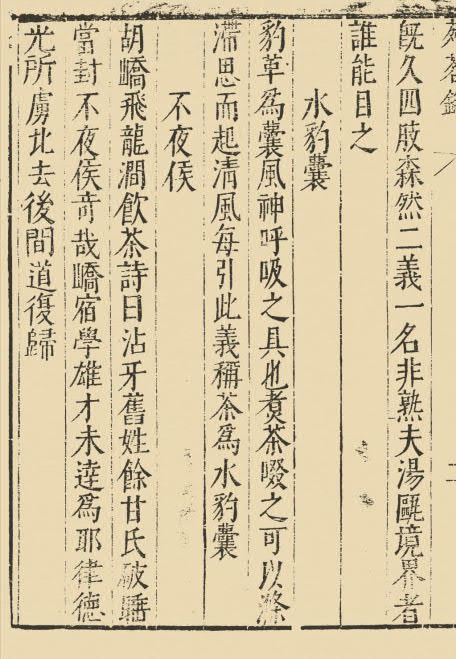 既久四肢森然二義一名非熟夫湯甌境界者
誰能目之
水豹囊
豹革爲囊風神呼吸之具也煮茶啜之可以滌
滯思而起清風每引此義稱茶爲水豹囊
不夜侯
胡嶠飛龍澗飲茶詩曰沾牙舊姓餘甘氏破睡
當封不夜侯奇哉嶠宿學雄才未達爲耶律德
光所虜北去後間道復歸